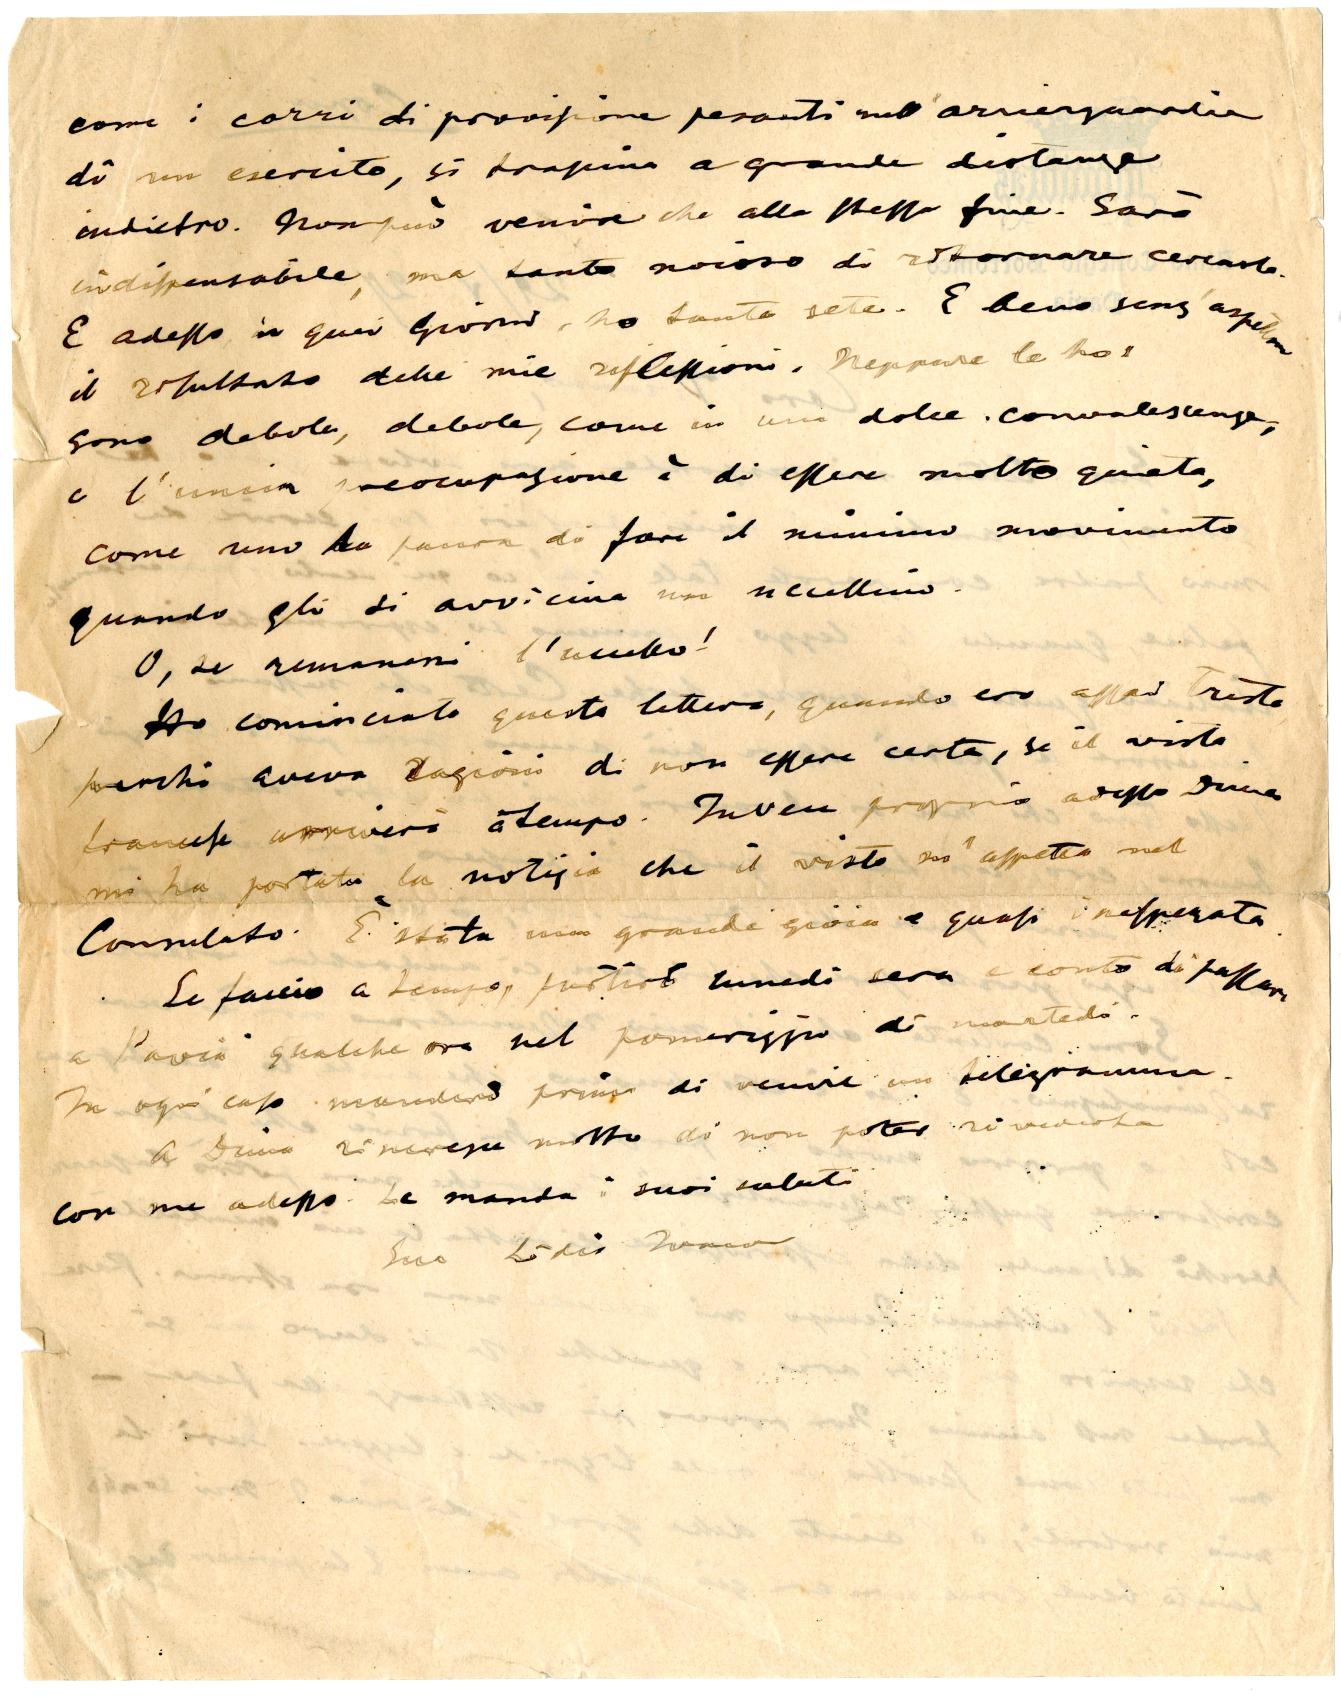 come i carri di provisione pesanti nell'arrierguardia
di un esercito, si trapina a grande distanza
indietro. Non può venire che alla stessa fine. Sarà
indispensabile, ma tanto noioso di ritornare cercarlo.
E adesso, in quei giorni, ho tanta sete. E bevo senz'aspettare
il risultato delle mie riflessioni. Neppure le ho:
sono debole, debole, come in una dolce convalescenza,
e l'unica preocupazione è di essere molto quieta,
come uno ha paura di fare il minimo movimento
quando gli si avvicina un uccellino.
O, se rimanessi l'uccello!
Ho cominciato questa lettera, quando ero assai triste,
perchè aveva ragioni di non essere certa, se il visto
francese arriverà a tempo. Invece proprio adesso Duina
mi ha portata la notizia che il visto m'aspetta nel
Consulato. È stata una grande gioia e quasi inesperata.
Se faccio a tempo, partirò lunedì sera e conto di passare
a Pavia qualche ora nel pomeriggio di martedì.
In ogni caso manderò prima di venire un telegramma.
A Duina rincresce molto di non poter rivederla
con me adesso. Le manda i suoi saluti
Sua Lidia